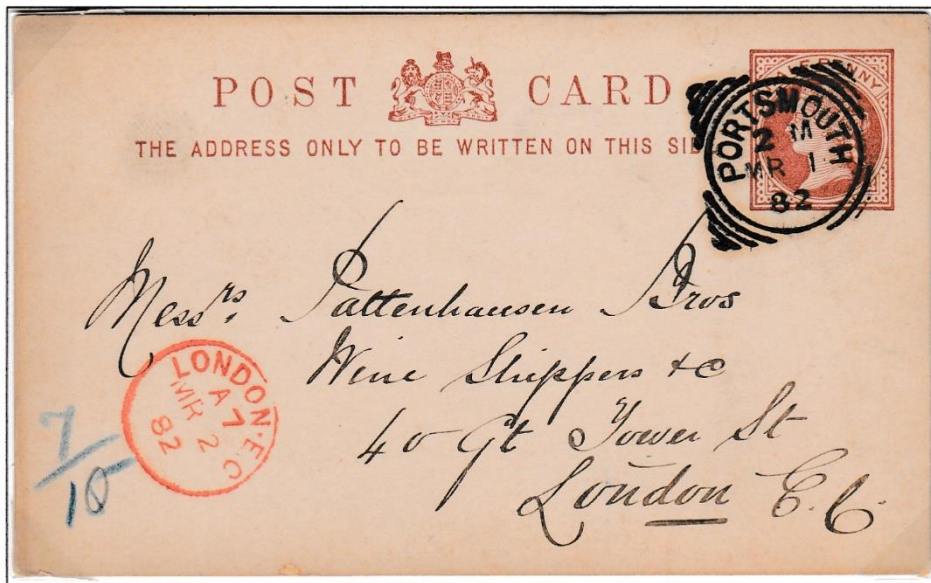 POST CARD
THE ADDRESS ONLY TO BE WRITTEN ON THIS SID
PENNY
PORTSMOUTH
2 M
MR 1
82
Messrs. Pattenhausen Bros
Wine Shippers &c
40 Gt Tower St
London E.C.
LONDON·E.C
A7
MR 2
82
7/10